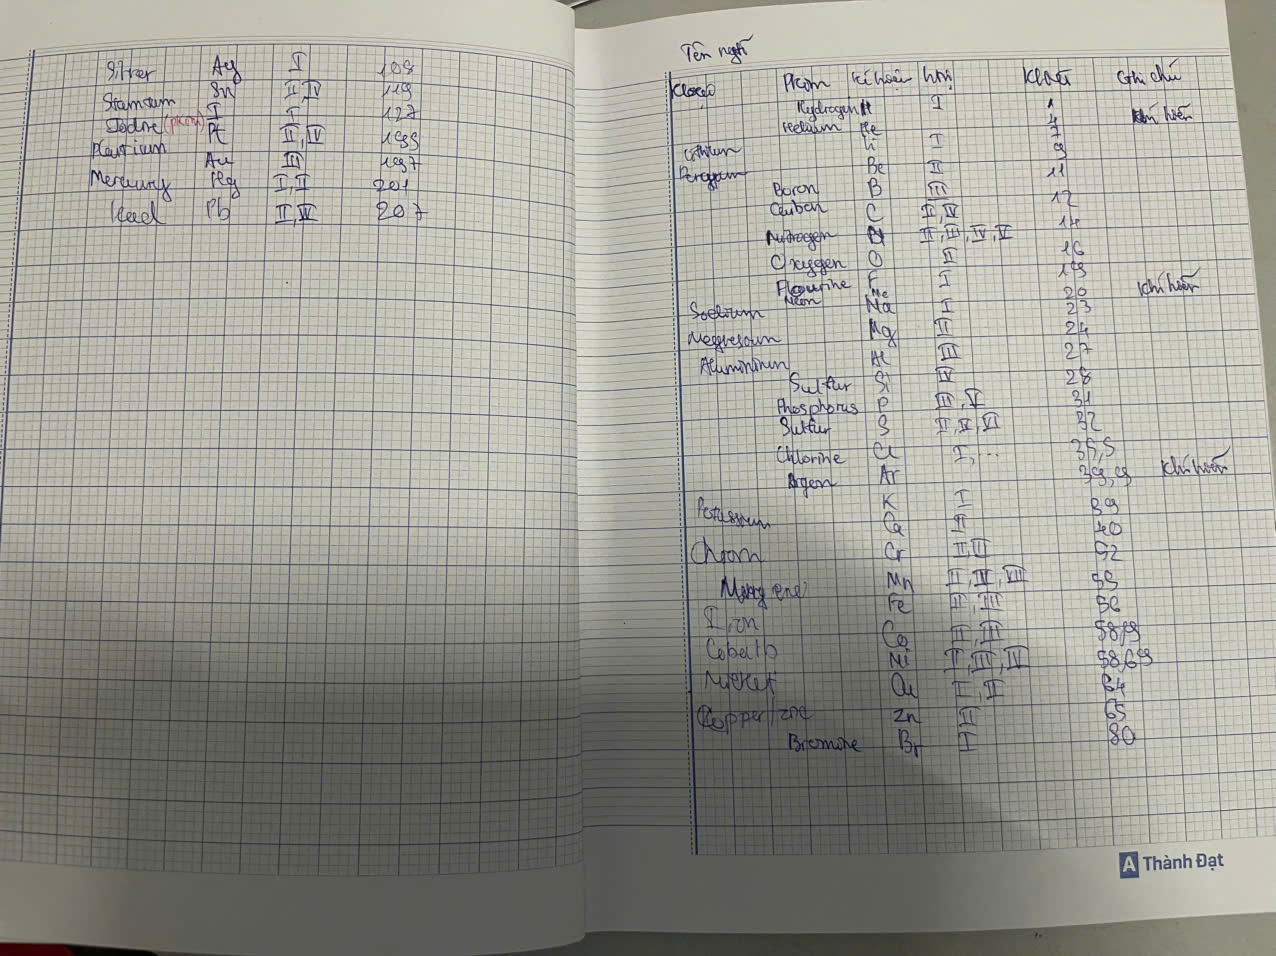 Silver Ag I 108
Stannum Sn II, IV 119
Iodine (phi kim) I I 127
Plantium Pt II, IV 195
Au III 197
Mercury Hg I, II 201
Lead Pb II, IV 207
Tên ngtố
K.loại P.kim kí hiệu htrị KLNT Ghi chú
Hydrogen H I 1
Helium He 4 khí hiếm
Lithium Li I 7
Be II 9
Boron B III 11
Cacban C II, IV 12
Nitrogen N II, III, IV, V 14
Oxygen O II 16
Flourine F I 19
Neon Ne 20 khí hiếm
Sodium Na I 23
Magnesium Mg II 24
Aluminium Al III 27
Sulfur Si IV 28
Phosphorus P III, V 31
Sulfur S II, IV, VI 32
Chlorine Cl I,... 35,5
Argon Ar 39,9 khí hiếm
Potassium K I 39
Ca II 40
Chrom Cr II, III 52
Mn II, IV, VII 55
I,on Fe II, III 56
Cobalt Co II, III 58,9
Nickel Ni II, III, IV 58,69
Copper Cu I, II 64
Zn II 65
Bromine Br I 80
A Thành Đạt